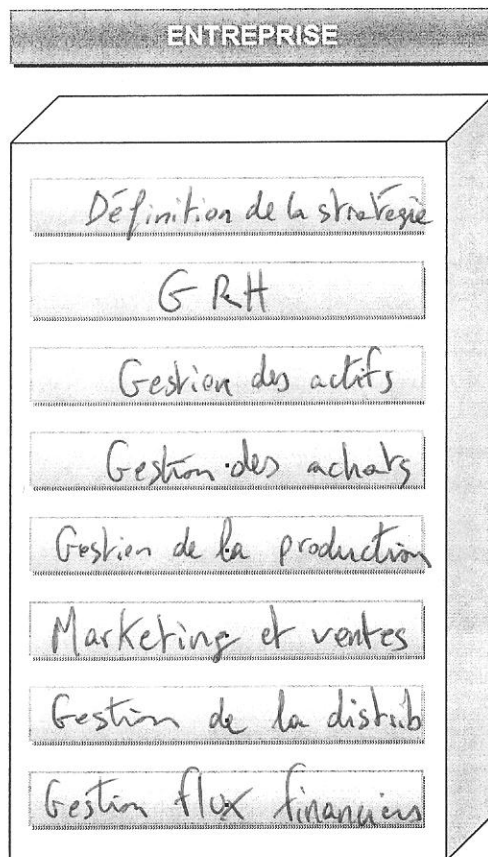 ENTREPRISE
Définition de la stratégie
GRH
Gestion des actifs
Gestion des achats
Gestion de la production
Marketing et ventes
Gestion de la distrib
Gestion flux financiers